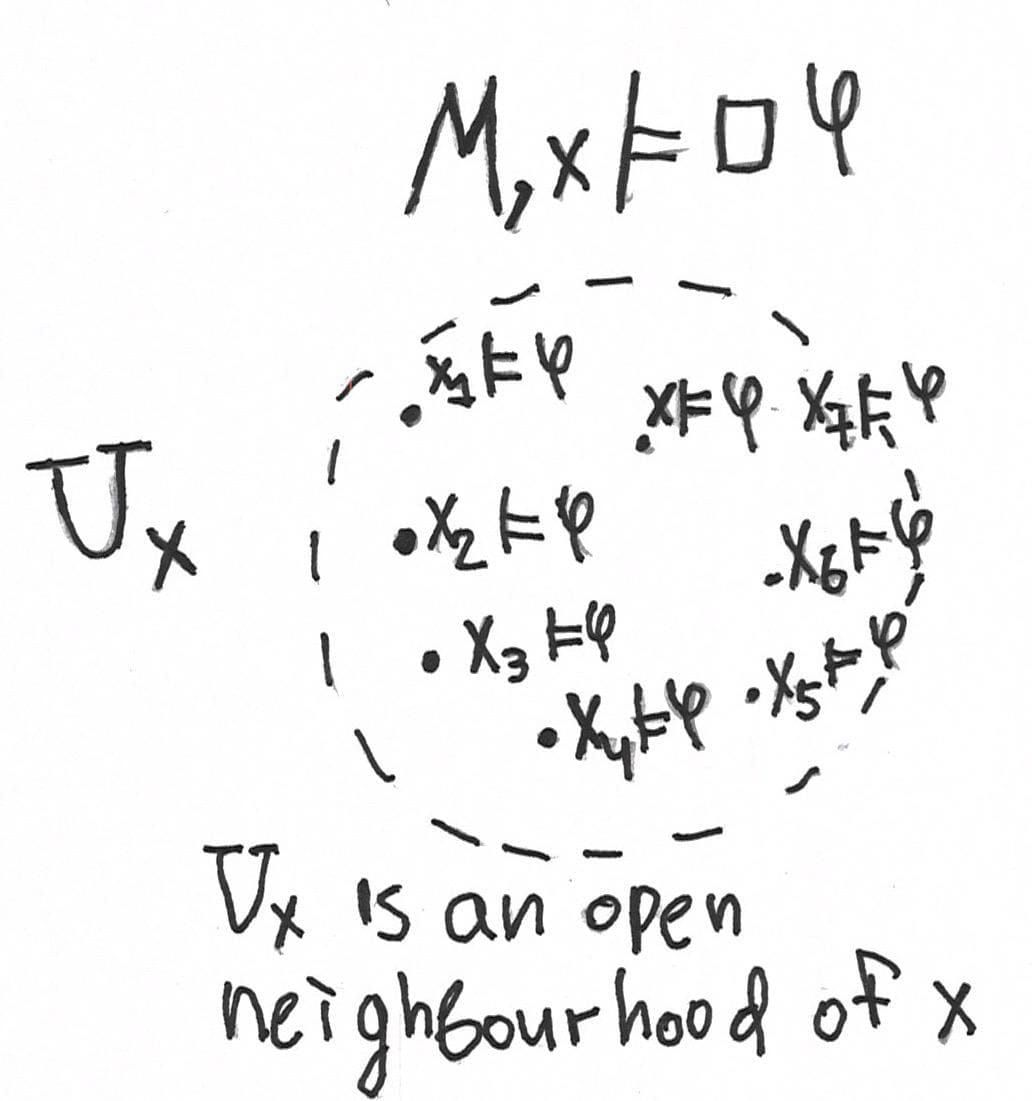 M, x ⊨ □ φ
x₁ ⊨ φ
x ⊨ φ x₇ ⊨ φ
Uₓ
x₂ ⊨ φ
x₆ ⊨ φ
x₃ ⊨ φ
x₅ ⊨ φ
x₄ ⊨ φ
Uₓ is an open
neighbourhood of x